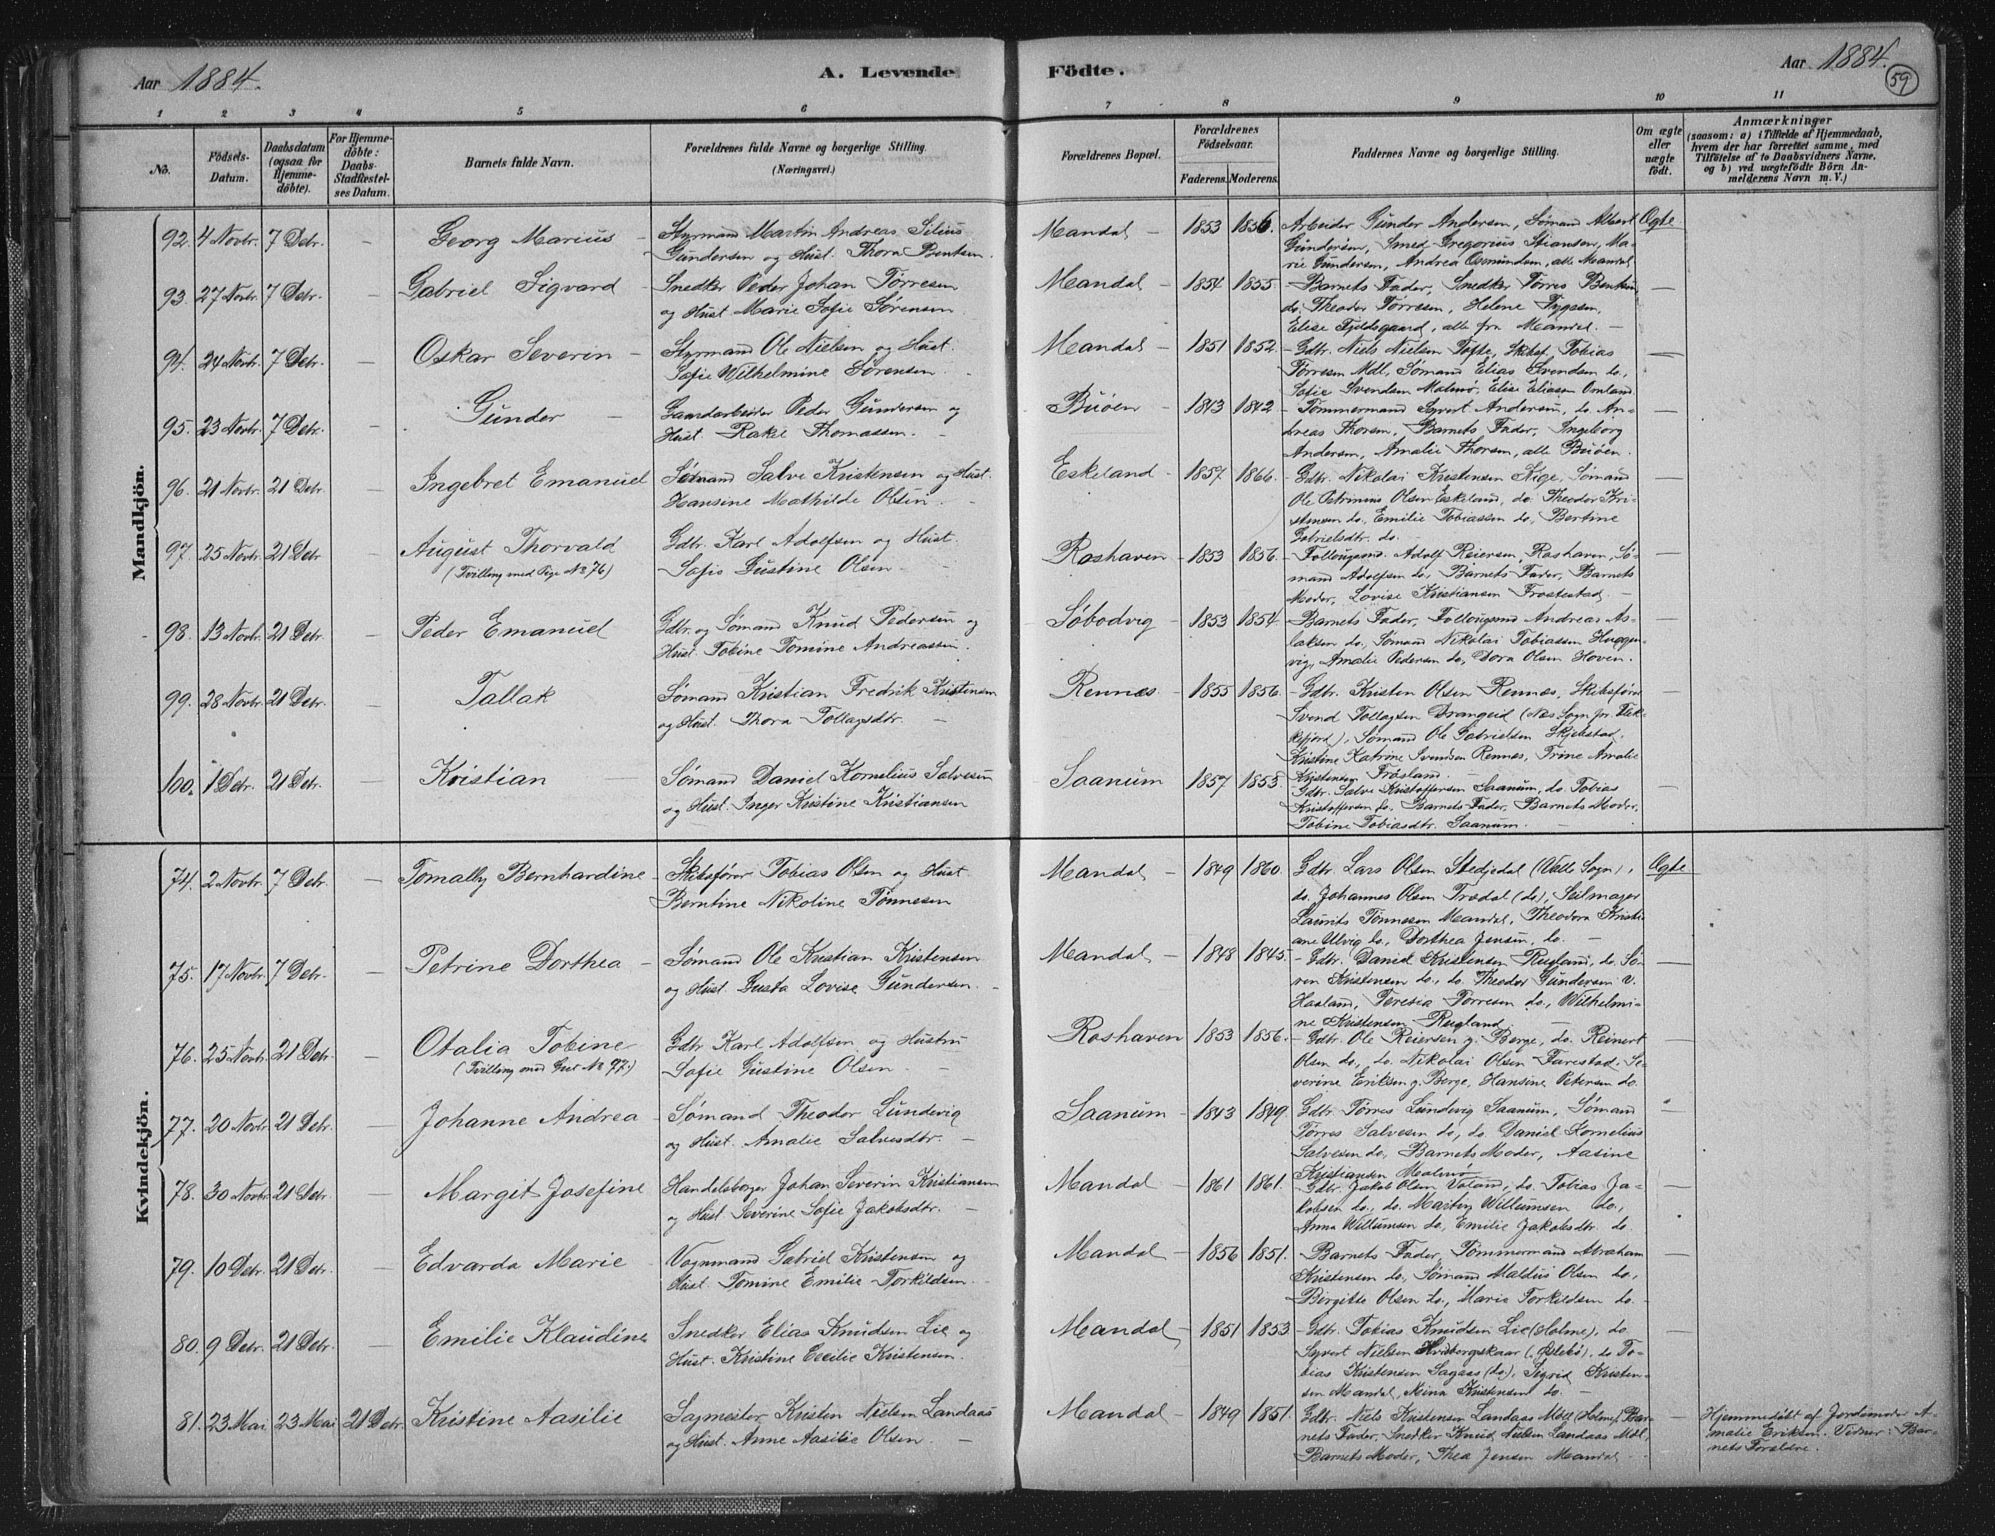 Aar 1884.
A. Levende
Födte.
Aar 1884.
59
1 2 3 4 5 6 7 8 9 10 11
No.
Födsels-Datum.
Daabsdatum (ogsaa for Hjemmedöbte).
For Hjemmedöbte: Daabs-Stadfæstelses Datum.
Barnets fulde Navn.
Forældrenes fulde Navne og borgerlige Stilling. (Næringsvei.)
Forældrenes Bopæl.
Forældrenes Födselsaar.
Faderens. Moderens.
Faddernes Navne og borgerlige Stilling.
Om ægte eller uægte födt.
Anmærkninger
(saasom: a) i Tilfælde af Hjemmedaab, hvem der har forrettet samme, med Tilföielse af to Daabsvidners Navne, og b) ved uægtefödte Börn Anmelderens Navn m. V.)
Mandkjön.
92. 4 Novbr. 7 Debr. — Georg Marius - Styrmand Martin Andreas Silius
Gundersen og Hust. Thora Bentsen.
Mandal - 1853 1856. Arbeider Gunder Andersen, Sømand Albert Ægte
Gundersen, Smed Gregorius Stiansen, Ma-
rie Gundersen, Andrea Osmundsen, alle Mandal
93. 27 Novbr. 7 Debr. — Gabriel Sigvard - Snedker Peder Johan Tørresen
og Hust. Marie Sofie Sørensen
Mandal - 1854 1855. - Barnets Fader, Snedker Tørres Bentsen, —
do. Theodor Tørresen, Helene
Elise Fjeldsgaard, alle fra Mandal. -
94. 24 Novbr. 7 Debr. — Oskar Severin - Styrmand Ole Nielsen og Hust.
Sofie Wilhelmine Sørensen.
Mandal - 1851 1852. - Gdbr. Niels Nielsen Tofte, Skibsf. Tobias —
Tørresen Mdl, Sømand Elias Svendsen do,
Sofie Svendsen Malmø, Elise Eliasen Omland
95. 23 Novbr. 7 Debr. — Gunder - Gaardarbeider Peder Gundersen og
Hust. Rakel Thomassen. -
Buøen - 1843 1842 - Tømmermand Syvert Andersen, do. An- —
dreas Thorsen, Barnets Fader, Ingeborg
Andersen, Amalie Thorsen, alle Buøen.
96. 21 Novbr. 21 Debr. — Ingebret Emanuel Sømand Salve Kristensen og Hust.
Hansine Mathilde Olsen. -
Eskeland - 1857 1866. - Gdbr. Nikolai Kristensen Kige, Sømand —
Ole Olsen Eskeland, do. Theodor Kri-
stensen do, Emilie Tobiassen do, Bertine
Gabrielsdtr. do.
97. 25 Novbr. 21 Debr. — August Thorvald Gdbr. Karl Adolfsen og Hust.
(Tvilling med Pige No 76) Sofie Gustine Olsen -
Roshaven - 1853 1856. - Follougsmd. Adolf Reiersen Roshaven, Sø- —
mand Adolfsen do, Barnets Fader, Barnets
Moder, Lovise Kristiansen Frostestad -
98. 13 Novbr. 21 Debr. — Peder Emanuel Gdbr. og Sømand Knud Pedersen og
Hust. Tobine Tomine Andreassen.
Søbodvig - 1853 1854. - Barnets Fader, Follougsmd Andreas As- —
laksen do, Sømand Nikolai Tobiassen Huggen-
vig, Amalie Pedersen do, Dora Olsen Hoven.
99. 28 Novbr. 21 Debr. — Tallak Sømand Kristian Fredrik Kristensen
og Hust. Thora Tollagsdtr. -
Rennes - 1855 1856. - Gdbr. Kristen Olsen Rennes, Skibsfører —
Svend Tollagsen Drangeid (Næs Sogn pr. Flek-
kefjord), Sømand Ole Gabrielsen Skjebstad.
Kristine Katrine Svendsen Rennes, Trine Amalie
Kristensen Frøsland. -
100. 1 Debr. 21 Debr. — Kristian - Sømand Daniel Kornelius Salvesen
og Hust. Inger Kristine Kristiansen
Saanum - 1857 1853. Gdbr. Salve Kristoffersen Saanum, do. Tobias —
Kristoffersen do, Barnets Fader, Barnets Moder,
Tobine Tobiasdtr. Saanum. -
Kvindekjön.
74. 2 Novbr. 7 Debr. — Tomally Bernhardine - Skibsfører Tobias Olsen og Hust.
Berntine Nikoline Tønnesen
Mandal - 1849 1860. Gdbr. Lars Olsen Stedjedal (Valle Sogn), Ægte
do. Johannes Olsen Trædal (do), Seilmager
Laurits Tønnesen Mandal, Theodora Kristi-
ane Ulvig do, Dorthea Jensen, do. -
75. 17 Novbr. 7 Debr. — Petrine Dorthea - Sømand Ole Kristian Kristensen
og Hust. Gusta Lovise Gundersen. -
Mandal - 1848 1845. - Gdbr. Daniel Kristensen Rugland, do. Sø- —
ren Kristensen do, do. Theodor Gundersen v.
Haaland, Teresia Tørresen do, Wilhelmi-
ne Kristensen Rugland -
76. 25 Novbr. 21 Debr. — Otalia Tobine Gdbr. Karl Adolfsen og Hustru
(Tvilling med Gut No 97.) Sofie Gustine Olsen. -
Roshaven 1853 1856. - Gdbr. Ole Reiersen g. Berge, do. Reinert —
Olsen do, do. Nikolai Olsen Farestad. Se-
verine Eriksen g. Berge, Hansine Petersen do.
77. 20 Novbr. 21 Debr. — Johanne Andrea - Sømand Theodor Lundevig
og Hust. Amalie Salvesdtr. -
Saanum - 1843 1849. Gdbr. Tørres Lundevig Saanum, Sømand —
Tørres Salvesen do, do. Daniel Kornelius
Salvesen do, Barnets Moder, Aasine
Kristiansen Malmø
78. 30 Novbr. 21 Debr. — Margit Josefine Handelsborger Johan Severin Kristiansen
og Hust. Severine Sofie Jakobsdtr. -
Mandal - 1861 1861. Gdbr. Jakob Olsen Valand, do. Tobias Ja- —
kobsen do, do. Martin Willumsen do,
Anna Willumsen do, Emilie Jakobsdtr. do.
79. 10 Debr. 21 Debr. — Edvarda Marie - Vognmand Gabriel Kristensen og
Hust. Tomine Emilie Torkildsen. -
Mandal - 1856 1851. - Barnets Fader, Tømmermand Abraham —
Kristensen do, Sømand Maldius Olsen do,
Birgitte Olsen do, Maria Torkildsen do. -
80. 9 Debr. 21 Debr. — Emilie Klaudine Snedker Elias Knudsen Lie og
Hust. Kristine Cecilie Kristensen.
Mandal - 1851 1853 - Gdbr. Tobias Knudsen Lie (Holme), do —
Syvert Nielsen (Øslebø), do To-
bias Kristensen Sagaas (do), Sigrid Kristen-
sen Mandal, Nina Kristensen do. -
81. 23 Mai 23 Mai 21 Debr. Kristine Aasilie Sagmester Kristen Nielsen Landaas
og Hust. Anne Aasilie Olsen. -
Mandal - 1849 1851. Gdbr. Niels Kristensen Landaas Mdl (Holme), Bar- —
nets Fader, Snedker Knud Nielsen Landaas Mdl,
Barnets Moder, Thea Jensen Mandal -
Hjemmedøbt af Jordemoder A-
malie Eriksen. Vidner: Bar-
nets Forældre.